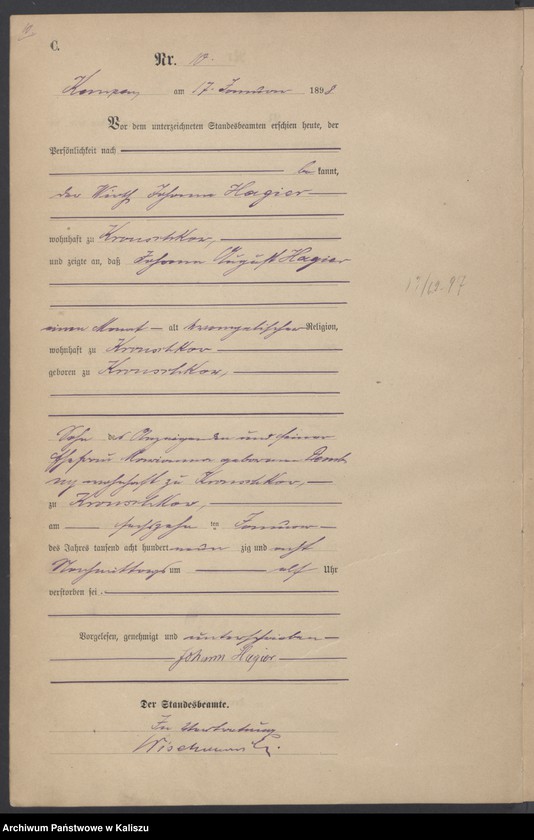 C.
Nr. 10.
Kempen, am 17. Januar 1898
Vor dem unterzeichneten Standesbeamten erschien heute, der
Persönlichkeit nach
be kannt,
der Wirth Johann Hagier
wohnhaft zu
und zeigte an, daß Johann August Hagier
einen Monat alt evangelischer Religion,
wohnhaft zu
geboren zu
Sohn des Anzeigenden und seiner
Ehefrau Marianna geborenen
wohnhaft zu
zu
am sechszehn ten Januar
des Jahres tausend acht hundert neun zig und acht
Nachmittags um elf Uhr
verstorben sei.
Vorgelesen, genehmigt und unterschrieben
Johann Hagier
Der Standesbeamte.
In Vertretung
17/12.97
Archiwum Państwowe w Kaliszu